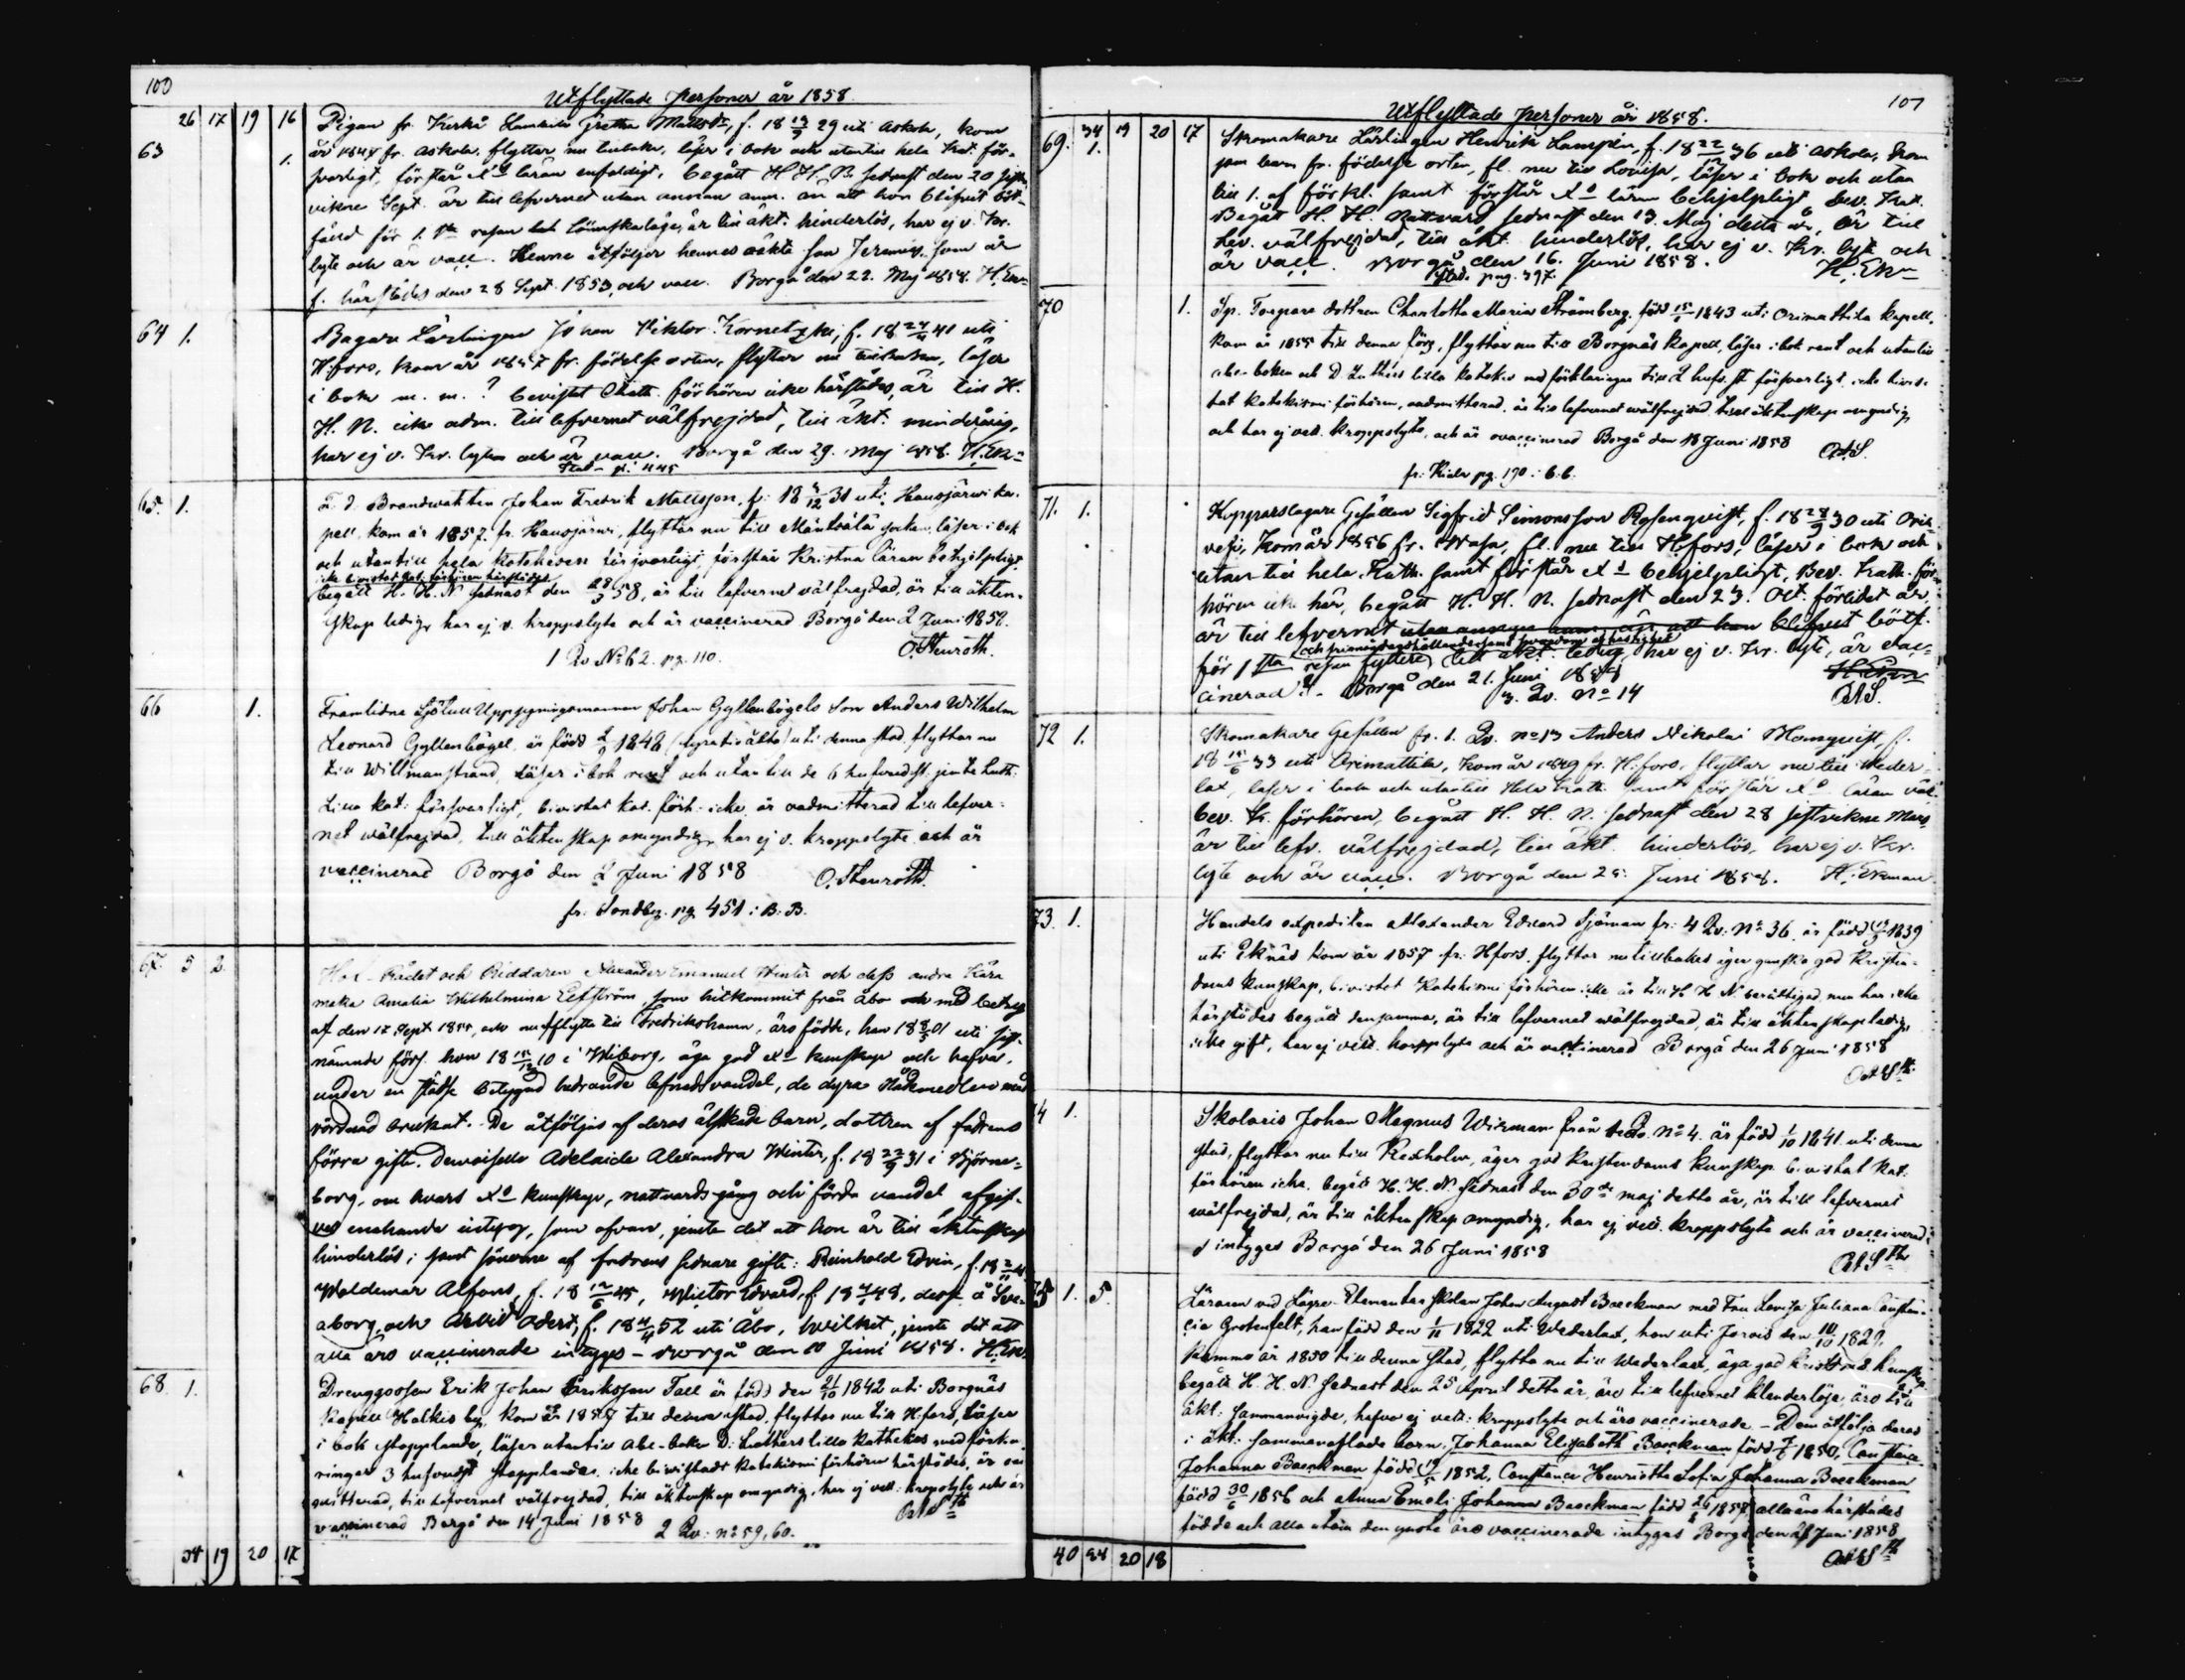 100
Utflyttade personer år 1858.
26 17 19 16
63 1.
Pigan fr. Kerkå Gretha Mattsdr, f. 18 29 uti Askola, kom
år 1847 fr. Askola, flyttar nu tillbaka, läser i bok och utantill hela Kat. för-
svarligt, förstår Xs läran enfaldigt, begått H. H. N. sednast den 20 sist-
vikne Sept. är till lefvernet utan annan anm. än att hon blifvit böt-
fäld för 1. sta resan lönskaläge, är till äkt. hinderlös, har ej v. Kr.
lyte och är vacc. Henne åtföljer hennes oäkta son Jeremias, som är
f. härstädes den 28 Sept. 1853, och vacc. Borgå den 22. Maj 1858. H. Ekn
64 1.
Bagare Lärlingen Johan Viktor Kornetzki, f. 18 41 uti
H:fors, kom år 1857 fr. födelse orten, flyttar nu tillbaka, läser
i bok m. m.? bevistat Chatt. förhören icke härstädes, är till H.
H. N. icke adm. till lefvernet välfrejdad, till äkt. minderårig,
har ej v. Kr. lyten och är vacc. Borgå den 29. Maj 1858. H. Ekn
65. 1.
F. d. Brandvakten Johan Fredrik Mattsson, f. 18 /12 31 uti Hausjärwi ka-
pell, kom år 1857 fr. Hausjärwi, flyttar nu till Mäntsälä socken, läser i bok
och utantill hela Katekesen försvarligt, förstår Kristna läran behjelpligt,
icke bevistat kat. förhören härstädes
begått H. H. N. sednast den 28/3 58, är till lefvernet välfrejdad, är till äkten-
skap ledig, har ej v. kroppslyte och är vaccinerad Borgå den 2 Juni 1858.
1 Qv No 62. pg. 110. O. Stenroth.
66 1.
Framlidne Uppsyningsmannen Johan Gyllenbögels Son Anders Wilhelm
Leonard Gyllenbögel, är född 1848 uti denna stad, flyttar nu
till Willmanstrand, läser i bok rent och utantill de 6 hufvudst. jemte Luth:
Lilla kat: försvarligt, bevistat kat. förh. icke, är oadmitterad till lefver-
net wälfrejdad, till äktenskap omyndig, har ej v. kroppslyte och är
vaccinerad Borgå den 2 Juni 1858 O. Stenroth.
fr. Landbg. pg 451: B. B.
67. 5 2.
Hof-Rådet och Riddaren Alexander Emanuel Winter och dess andra kära
maka Amalia Wilhelmina Elfström, som hitkommit från Åbo med betyg
af den 17 Sept. 1855, och nu flytta till Fredrikshamn, äro födde, han 18 01 uti sist-
nämnde förs. hon 18 10 i Wiborg, äga god Xs kunskap och hafva,
under en städse betygad hedrande lefnadsvandel, de dyra Nådemedlen med
vördnad brukat. De åtföljas af deras älskade barn, dottren af fadrens
förra gifte: Demoiselle Adelaide Alexandra Winter, f. 18 22/9 31 i Björne-
borg, om hvars Xs kunskap, nattvardsgång och förda vandel afgif-
ves enahanda intyg, som ofvan, jemte det att hon är till äktenskap
hinderlös; samt sönerne af fadrens sednare gifte: Reinhold Edvin, f. 18
Woldemar Alfons, f. 18 /6 45, Wictor Edvard, f. 18 48, desse å Sve-
aborg, och Arvid f. 18 52 uti Åbo, hvilket, jemte det att
alla äro vaccinerade intygas – Borgå den 10 Juni 1858. H. Ekn
68. 1.
Drenggossen Erik Johan Eriksson Tall är född den 21/10 1842 uti Borgnäs
Kapell Halkis by, kom år 1857 till denna stad, flyttar nu till H:fors, läser
i bok stapplande, läser utantill Abc-boken D: Luthers lilla Kathekes med förkla-
ringar 3 hufvudst stapplande, icke bevistadt Katekismi förhören härstädes, är oad-
mitterad, till lefvernet välfrejdad, till äktenskap omyndig, har ej vett. kropslyte och är
vaccinerad Borgå den 14 Juni 1858
2 Qv: no 59, 60.
34 19 20 17
101
Utflyttade personer år 1858.
34 19 20 17
69. 1.
Skomakare Lärlingen Henrik Lampén, f. 18 22/12 36 uti Askola, kom
som barn fr. födelse orten, fl. nu till Lovisa, läser i bok och utan
till 1. af förkl. samt förstår Xs läran behjelpligt, bev. Kat.
Begått H. H. Nattvard sednast den 13. Maj detta år, är till
Lev. välfrejdad, till äkt. hinderlös, har ej v. Kr. lyte och
är vacc. Borgå den 16. Juni 1858. H. Ekn
pag. 397.
70 1.
Sp. Torpare dottren Charlotta Maria Strömberg, född 15/ 1843 uti Orimattila kapell,
kom år 1855 till denna förs, flyttar nu till Borgnäs kapell, läser i bok rent och utantill
abc-boken och D. Luthers lilla katekes med förklaringar till 2 hufs. st försvarligt, icke bivis-
tat katekismi förhören, oadmitterad, är till lefvernet wälfrejdad, till äktenskap omyndig,
och har ej vett. kroppslyte, och är ovaccinerad Borgå den 18 Juni 1858
fr. Kiala pg. 170: b.b.
71. 1.
Kopparslagare Gesällen Sigfrid Simonsson Rosenqvist, f. 18 28/9 30 uti Ori-
vesi, kom år 1856 fr. Wasa, fl. nu till H:fors, läser i bok och
utantill hela Kath. samt förstår Xs behjelpligt, Bev. Kath. för-
hören icke här, begått H. H. N. sednast den 23. Oct. förlidet år,
är till lefvernet utan annan anm. än att han blifvit bötf.
för 1 sta resan fylleri, till äkt. ledig, har ej v. Kr. lyte, är vac-
cinerad. – Borgå den 21. Juni 1858
3. Qv. No 14
72 1.
Skomakare Gesällen fr. 1. Qv. no 13 Anders Nikolai Blomqvist f.
18 15/6 33 uti Orimattila, kom år 1849 fr. H:fors, flyttar nu till Weder-
lax, läser i bok och utantill Hela Kath. samt förstår Xs Läran väl
bev. K. förhören, begått H. H. N. sednast den 28 sistvikne Mars,
är till lefv. välfrejdad, till äkt. hinderlös, har ej v. Kr.
lyte och är vacc. Borgå den 25. Juni 1858. H. Ekman
73. 1.
Handels expediten Alexander Edvard Sjöman fr: 4 Qv: No 36. är född 1839
uti Eknäs kom år 1857 fr: H:fors, flyttar nu tillbaka, äger ganska god Kristen-
doms kunskap, bivistat Katekismi förhören icke är till H. H. N. berättigad, men har icke
härstädes begått densamma, är till lefvernet wälfrejdad, är till äktenskap ledig,
icke gift, har ej vett. kroppslyte och är vaccinerad Borgå den 26 Juni 1858
74 1.
Skolaris Johan Magnus Wikman från No 4. är född 1/10 1841 uti denna
stad, flyttar nu till Kexholm, äger god Kristendoms kunskap, bivistat Kat:
förhören icke, begått H. H. N. sednast den 30de maj detta år, är till lefvernet
wälfrejdad, är till äktenskap omyndig, har ej vett. kroppslyte och är vaccinerad;
intyges Borgå den 26 Juni 1858
75 1. 5.
Läraren vid Lägre Elementar skolan Johan August Baeckman med Fru Lovisa Juliana Constan-
cia Grotenfelt, han född den 1/11 1822 uti Wederlax, hon uti Jorois den 10/10 1829,
komme år 1850 till denna stad, flytta nu till Wederlax, äga god kristend. kunskap,
begått H. H. N. sednast den 25 April detta år, äro till lefvernet klanderlöse, äro till
äkt: sammanvigde, hafva ej vett: kroppslyte och äro vaccinerade. – Dem åtfölja deras
i äkt: sammanaflade barn, Johanna Elisabeth Baeckman född 1850, Constance
Johanna Baeckman född 1852, Constance Henrietta Sofia Johanna Baeckman
född 30/6 1856 och Anna Emeli Johanna Baeckman född 26 1857, alla äro härstädes
födde och alla utom den yngsta äro vaccinerade intygas Borgå den 28 Juni 1858
40 24 20 18